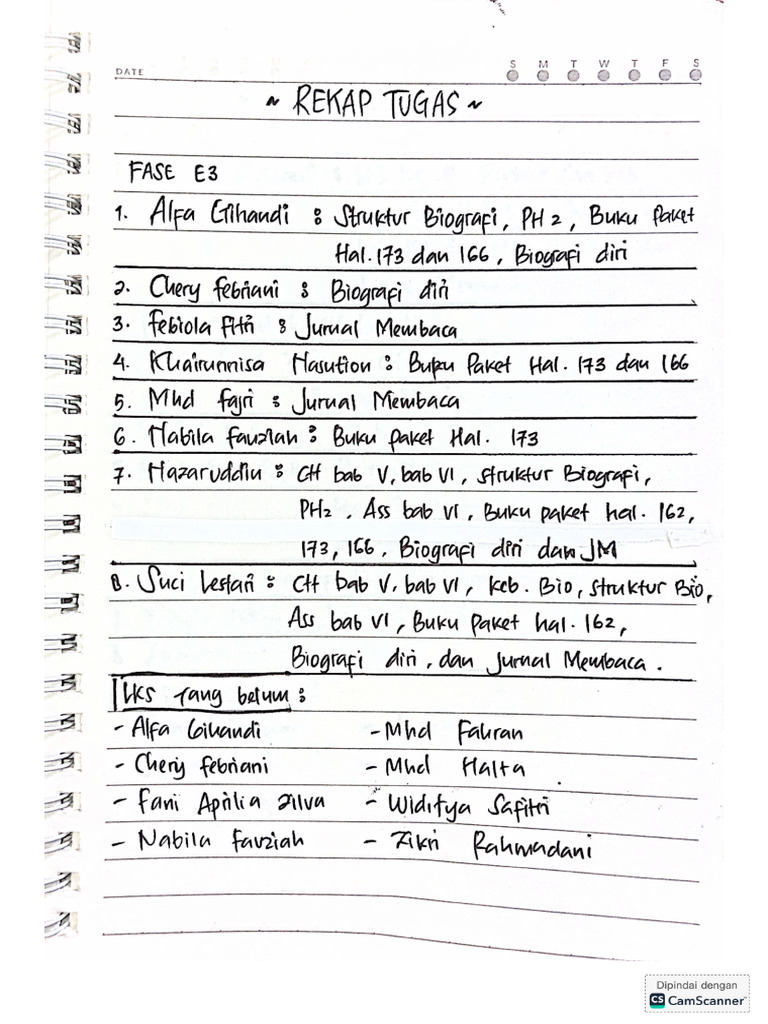 DATE
S M T W T F S
~ REKAP TUGAS ~
FASE E3
1. Alfa Gihandi : Struktur Biografi, PH 2, Buku Paket
Hal. 173 dan 166, Biografi diri
2. Chery febriani : Biografi diri
3. febiola fitri : Jurnal Membaca
4. Khairunnisa Nasution : Buku Paket Hal. 173 dan 166
5. Mhd fajri : Jurnal Membaca
6. Nabila fauziah : Buku paket Hal. 173
7. Nazaruddin : CH bab V, bab VI, struktur Biografi,
PH2, Ass bab VI, Buku paket hal. 162,
173, 166, Biografi diri dan JM
8. Suci Lestari : CH bab V, bab VI, keb. Bio, struktur Bio,
Ass bab VI, Buku paket hal. 162,
Biografi diri, dan Jurnal Membaca.
LKS Yang belum :
- Alfa Gihandi - Mhd Fahran
- Chery febriani - Mhd
- Fani Aprilia Zilva - Widitya Safitri
- Nabila fauziah - Zikri Rahmadani
Dipindai dengan
CS CamScanner